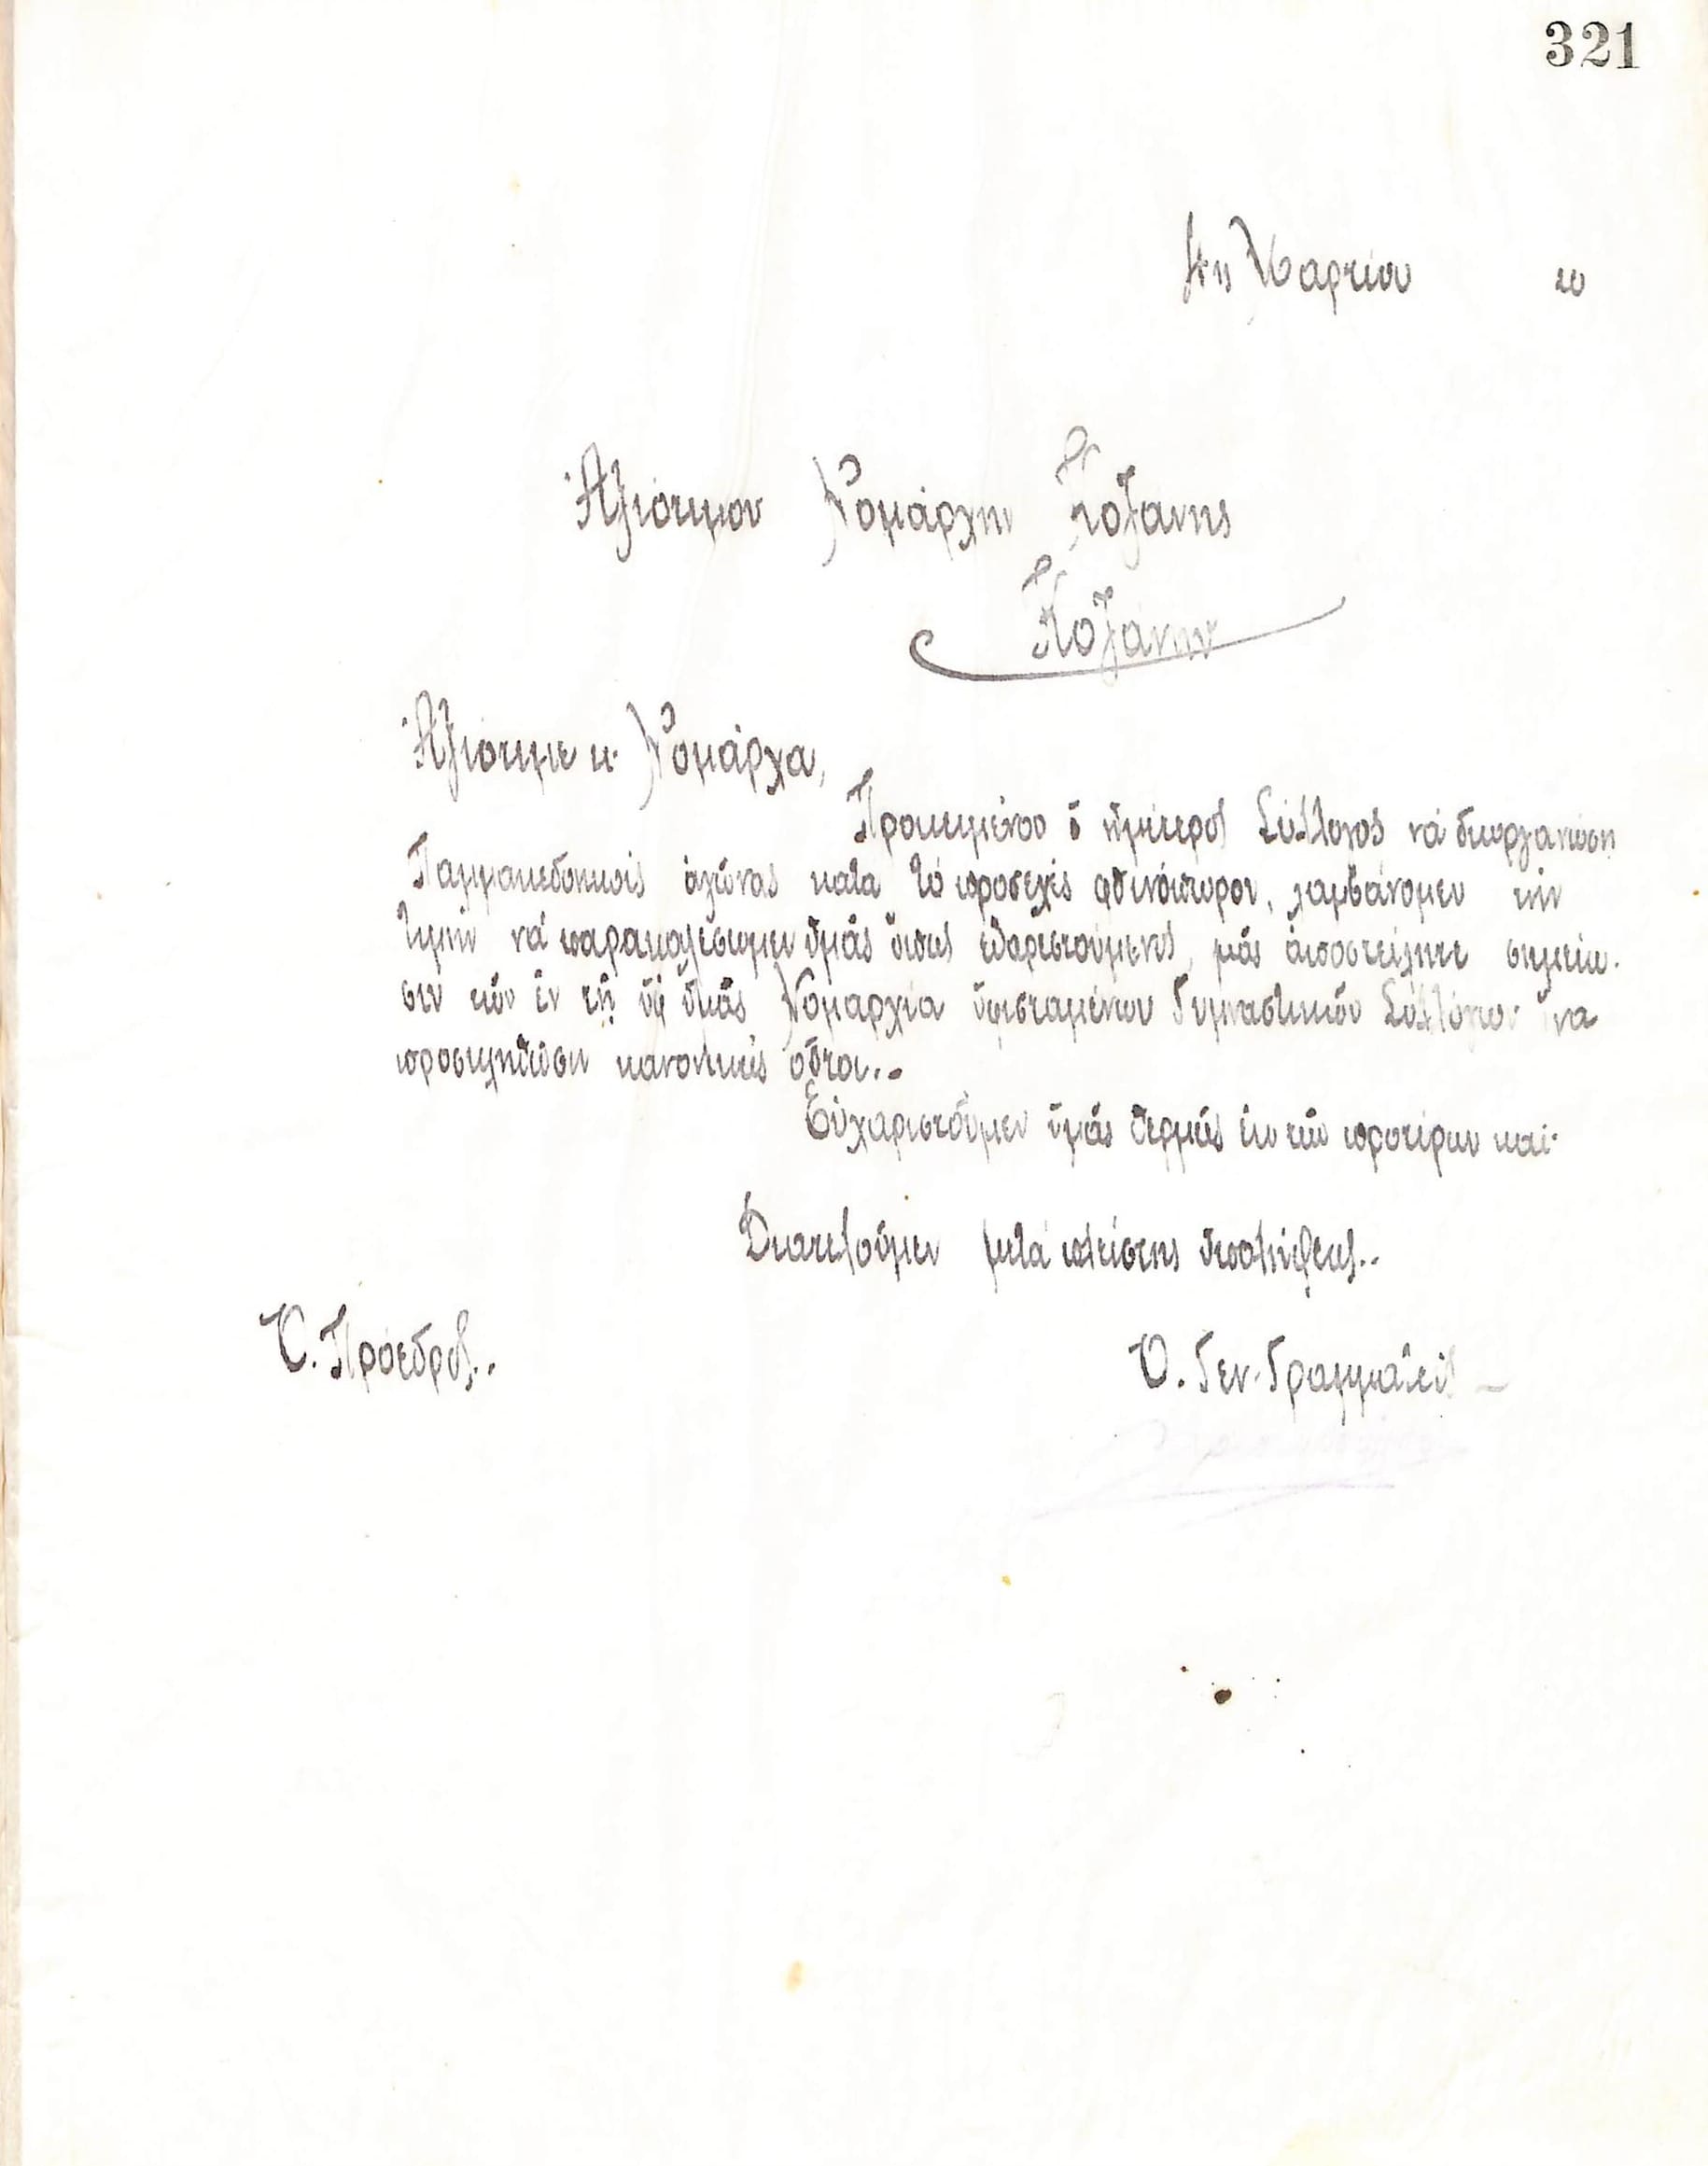 321
4ης Μαρτίου 20
Ἀξιότιμον Νομάρχην Κοζάνης
Κοζάνην
Ἀξιότιμε κ. Νομάρχα,
Προκειμένου ὁ ἡμέτερος Σύλλογος νά διοργανώση
Παμμακεδονικούς ἀγώνας κατα τό προσεχές φθινόπωρον, λαμβάνομεν τήν
τιμήν νά παρακαλέσωμεν ὑμᾶς ὅπως εὐαρεστούμενος, μᾶς ἀποστείλητε σημείω-
σιν τῶν ἐν τῇ ὑφ' ὑμᾶς Νομαρχία ὑφισταμένων Γυμναστικῶν Συλλόγων ἵνα
προσκληθῶσιν κανονικῶς οὗτοι..
Εὐχαριστοῦμεν ὑμᾶς θερμῶς ἐκ τῶν προτέρων καί
Διατελοῦμεν μετά πλείστης ὑπολήψεως..
Ὁ. Πρόεδρος..
Ὁ. Γεν. Γραμματεύς